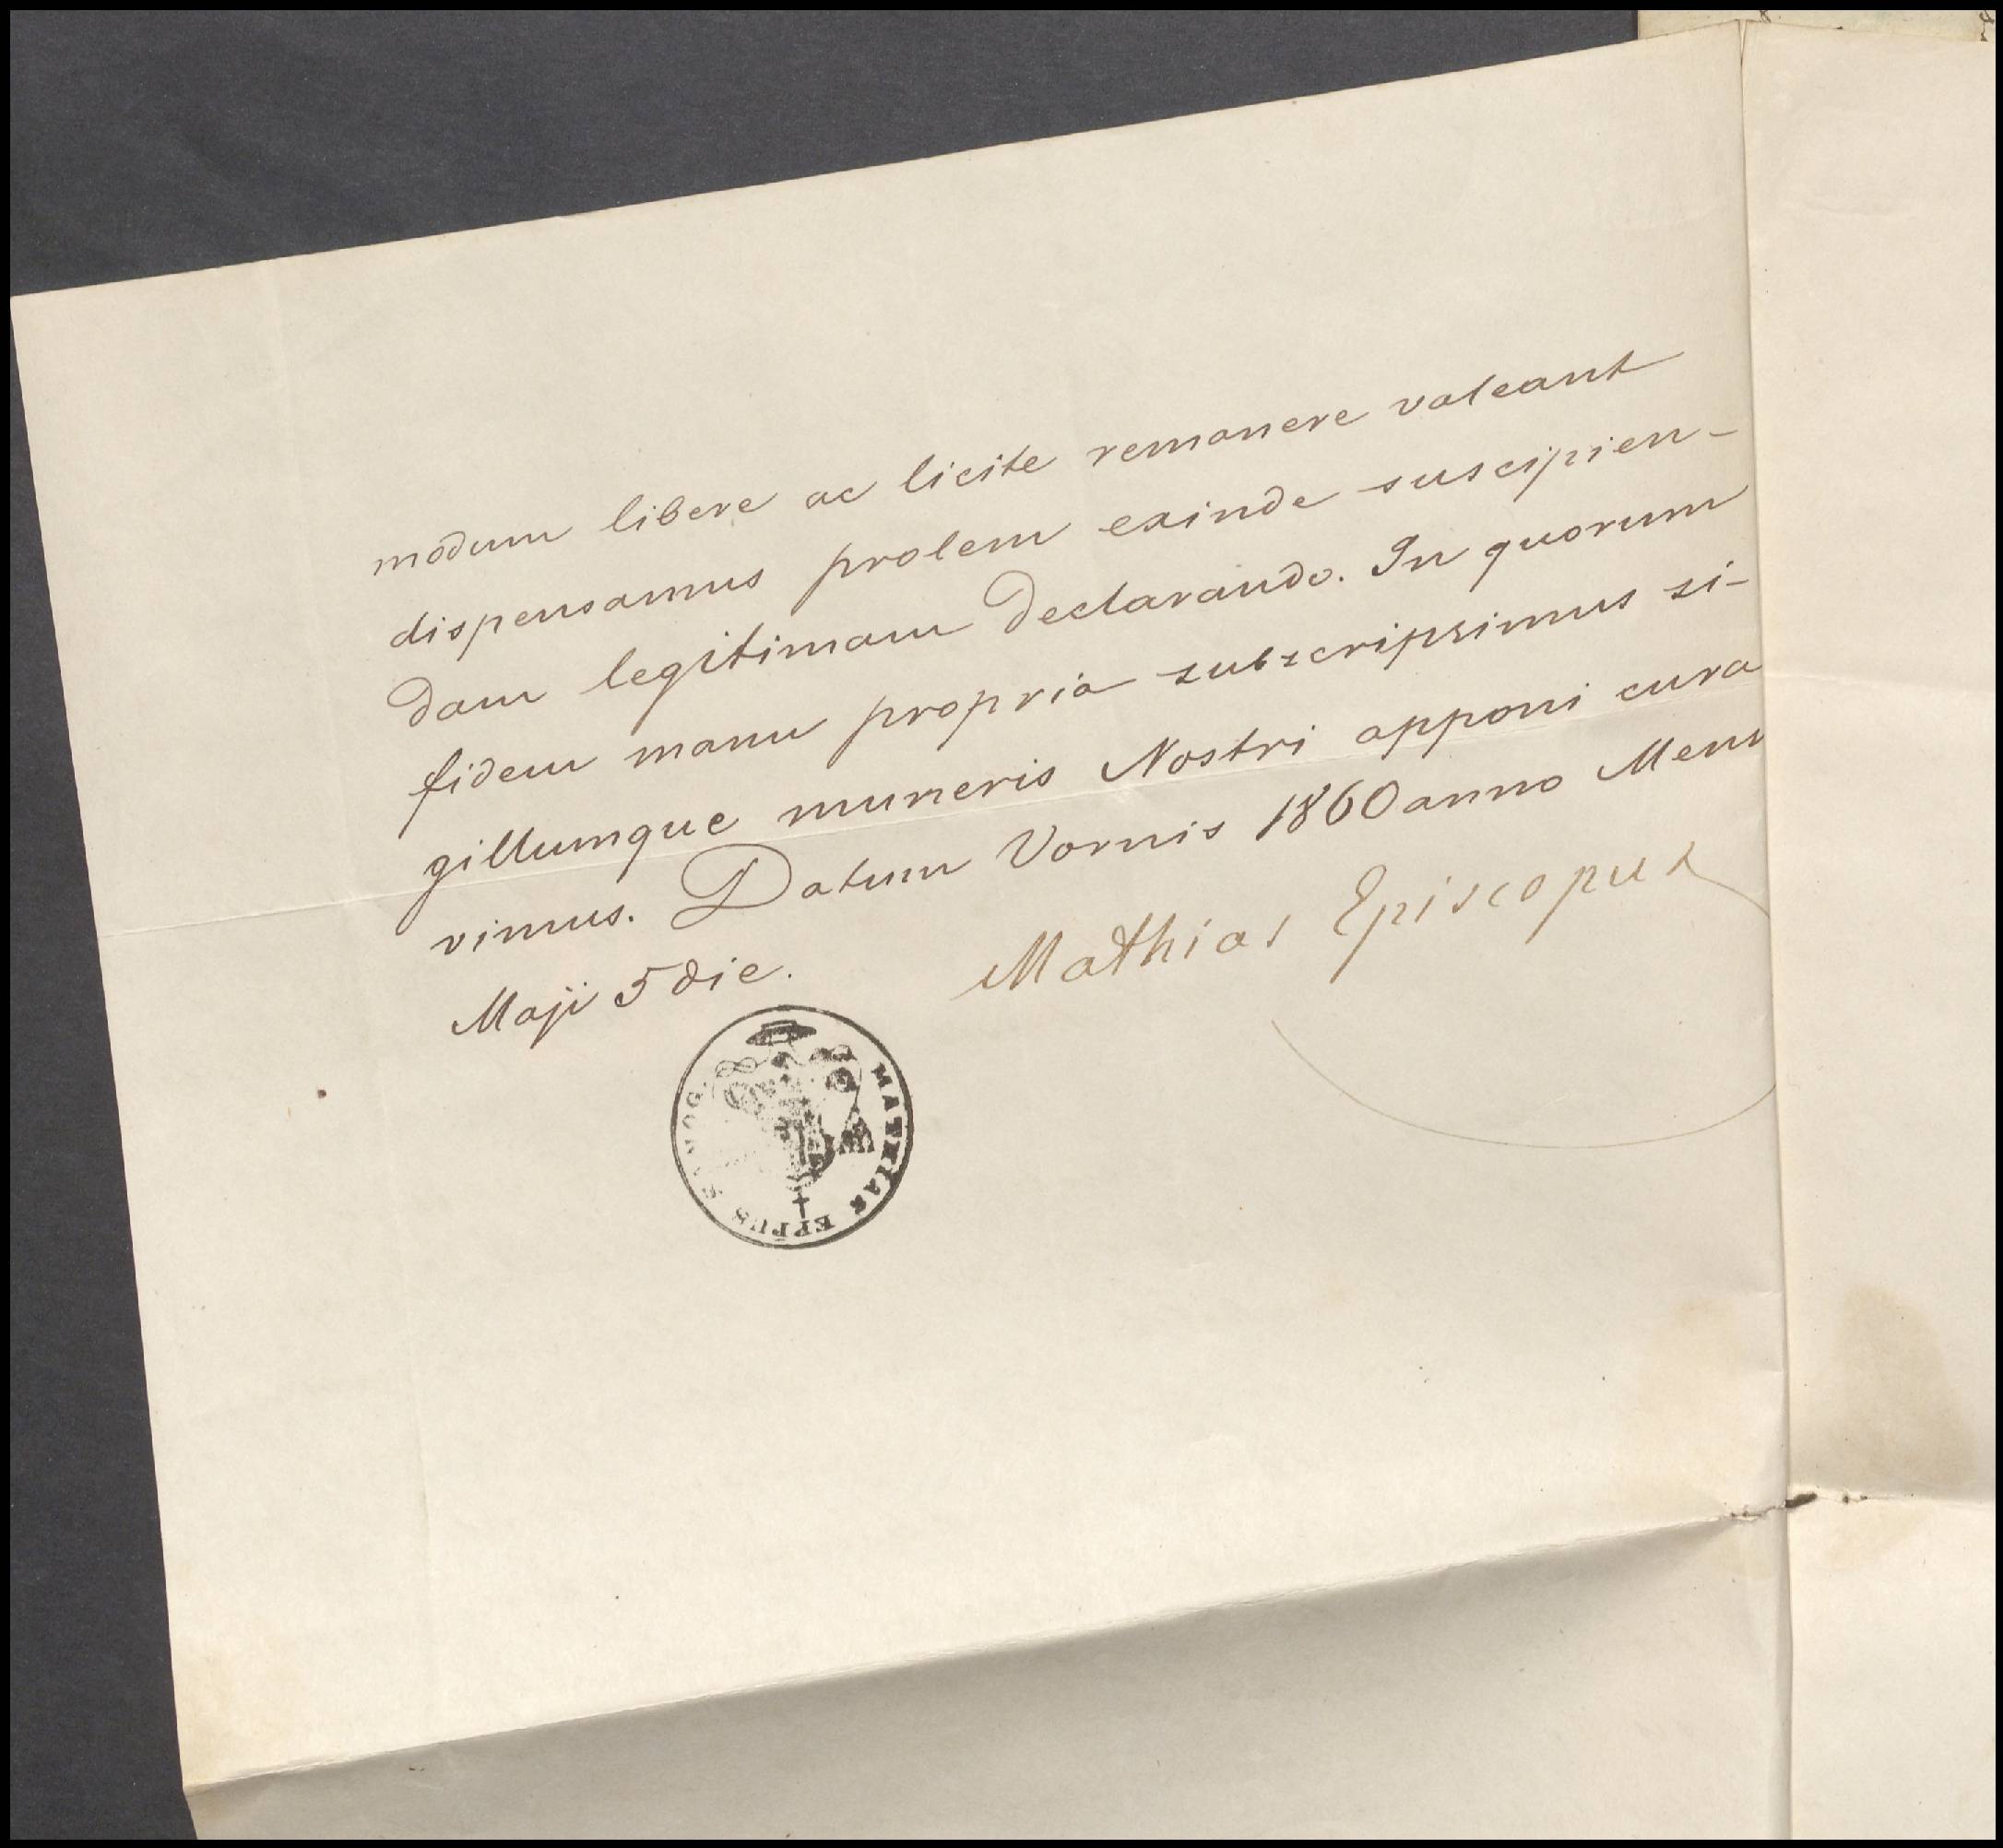 modum libere ac licite remanere valeant
dispensamus prolem exinde suscipien-
dam legitimam declarando. In quorum
fidem manu propria subscripsimus si-
gillumque muneris Nostri apponi cura
vimus. Datum Vornis 1860 anno Mens
Maji 5 die.
Mathias Episcopus
MATHIAS EPPUS SAMOG.